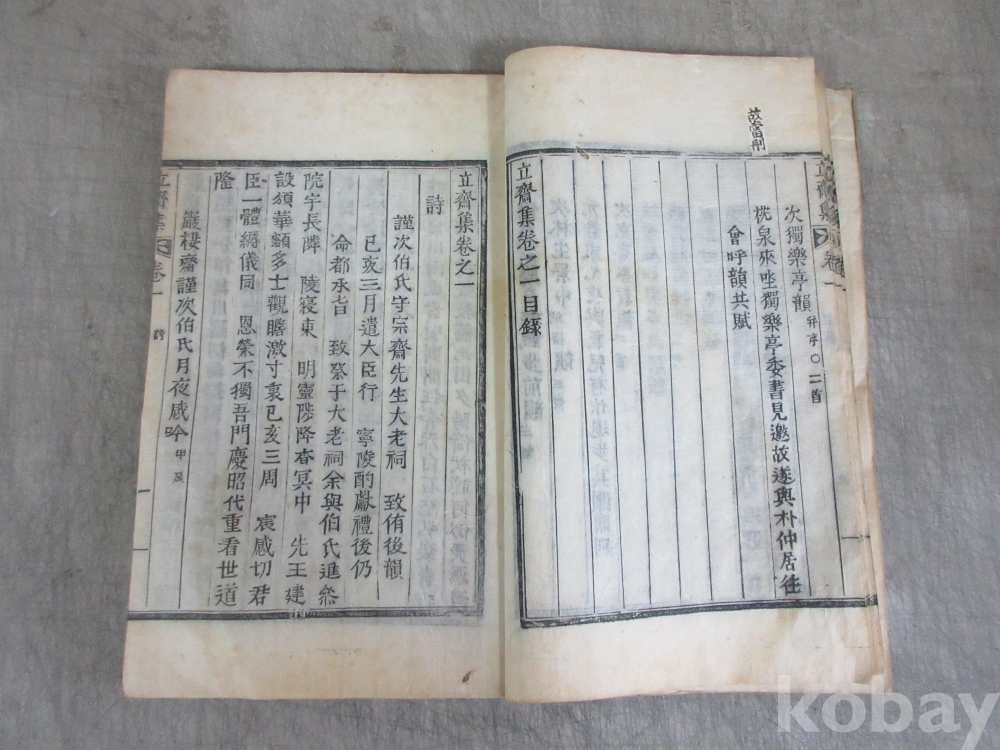 故當削
立齋集
卷一
次獨樂亭韻 幷序○二首
桃泉來坐獨樂亭委書見邀故遂與朴仲居往
會呼韻共賦
立齋集卷之一目錄
立齋集卷之一
詩
謹次伯氏守宗齋先生大老祠 致侑後韻
己亥三月遣大臣行 寧陵酌獻禮後仍
命都承旨 致祭于大老祠余與伯氏進參
院宇長隣 陵寢東 明靈陟降杳冥中 先王建
設須華額多士觀瞻激寸衷己亥三周 哀感切君
臣一體縟儀同 恩榮不獨吾門慶昭代重看世道
隆
巖棲齋謹次伯氏月夜感吟 甲辰
立齋集
卷一
詩
一
kobay